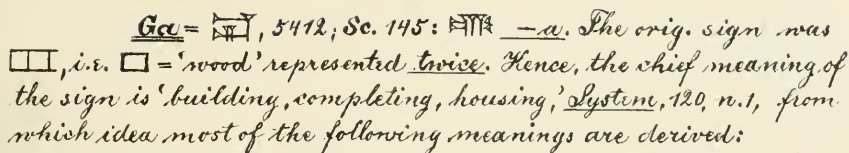 Ga = 𒂷, 5412; Sc. 145: 𒂵 —a. The orig. sign was
, i.e. = 'wood' represented twice. Hence, the chief meaning of
the sign is 'building, completing, housing,' System, 120, n. 1, from
which idea most of the following meanings are derived: